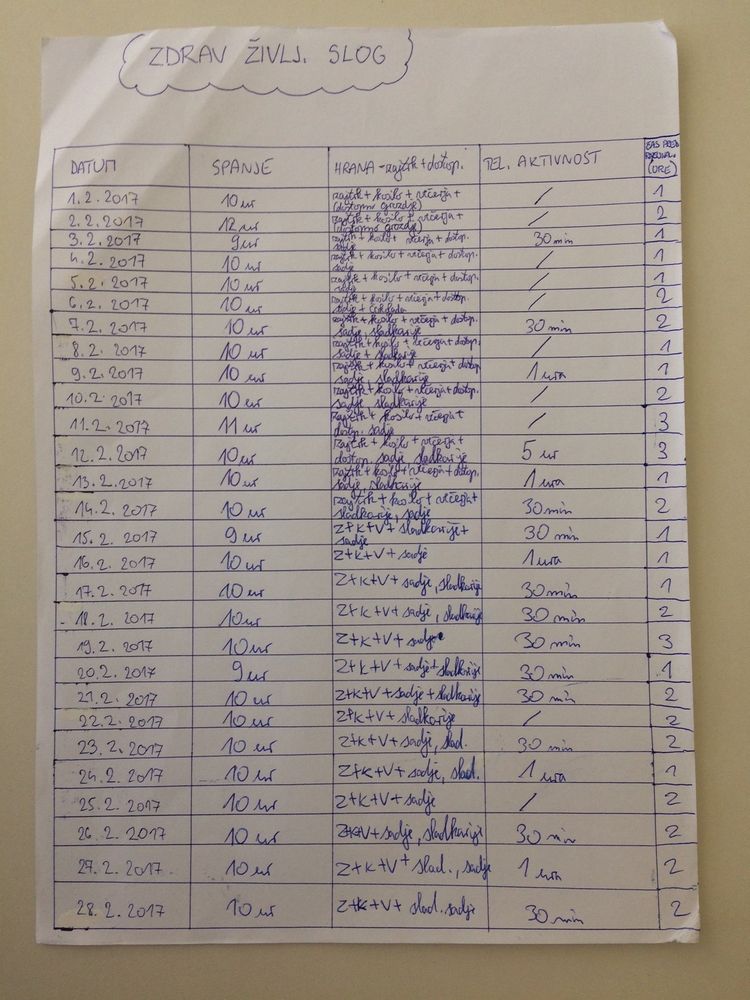 ZDRAV ŽIVLJ. SLOG
DATUM SPANJE HRANA - zajtrk + dostop. TEL. AKTIVNOST ČAS PRED (URE)
1. 2. 2017 10 ur zajtrk + kosilo + večerja + / 1
(dostopno grozdje)
2. 2. 2017 12 ur zajtrk + kosilo + večerja + / 2
(dostopno grozdje)
3. 2. 2017 9 ur zajtrk + kosilo + večerja + dostop. 30 min 1
sadje
4. 2. 2017 10 ur zajtrk + kosilo + večerja + dostop. / 1
sadje
5. 2. 2017 10 ur zajtrk + kosilo + večerja + dostop. / 1
sadje
6. 2. 2017 10 ur zajtrk + kosilo + večerja + dostop. / 2
sadje + čokolada
7. 2. 2017 10 ur zajtrk + kosilo + večerja + dostop. 30 min 2
sadje, sladkarije
8. 2. 2017 10 ur zajtrk + kosilo + večerja + dostop. / 1
sadje + sladkarije
9. 2. 2017 10 ur zajtrk + kosilo + večerja + dostop. 1 ura 1
sadje, sladkarije
10. 2. 2017 10 ur zajtrk + kosilo + večerja + dostop. / 2
sadje, sladkarije
11. 2. 2017 11 ur zajtrk + kosilo + večerja + / 3
dostop. sadje
12. 2. 2017 10 ur zajtrk + kosilo + večerja + 5 ur 3
dostop. sadje sladkarije
13. 2. 2017 10 ur zajtrk + kosilo + večerja + dostop. 1 ura 1
sadje, sladkarije
14. 2. 2017 10 ur zajtrk + kosilo + večerja + 30 min 2
sladkarije, sadje
15. 2. 2017 9 ur Z+K+V+ sladkarije + 30 min 1
sadje
16. 2. 2017 10 ur Z+K+V+ sadje 1 ura 1
17. 2. 2017 10 ur Z+K+V+ sadje, sladkarije 30 min 1
18. 2. 2017 10 ur Z+K+V+ sadje, sladkarije 30 min 2
19. 2. 2017 10 ur Z+K+V+ sadje 30 min 3
20. 2. 2017 9 ur Z+K+V+ sadje + sladkarije 30 min 1
21. 2. 2017 10 ur Z+K+V+ sadje + sladkarije 30 min 2
22. 2. 2017 10 ur Z+K+V+ sladkarije / 2
23. 2. 2017 10 ur Z+K+V+ sadje, slad. 30 min 2
24. 2. 2017 10 ur Z+K+V+ sadje, slad. 1 ura 1
25. 2. 2017 10 ur Z+K+V+ sadje / 2
26. 2. 2017 10 ur Z+K+V+ sadje, sladkarije 30 min 2
27. 2. 2017 10 ur Z+K+V+ slad., sadje 1 ura 2
28. 2. 2017 10 ur Z+K+V+ slad. sadje 30 min 2